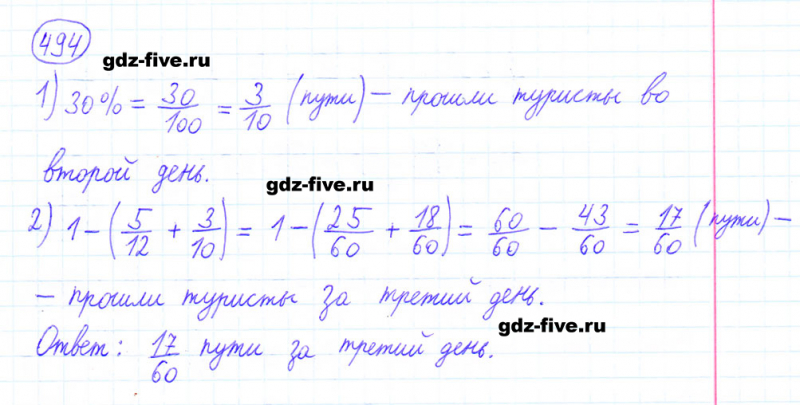 494
gdz-five.ru
1) 30% = 30/100 = 3/10 (пути) – прошли туристы во
второй день.
gdz-five.ru
2) 1 – (5/12 + 3/10) = 1 – (25/60 + 18/60) = 60/60 – 43/60 = 17/60 (пути) –
– прошли туристы за третий день.
gdz-five.ru
Ответ: 17/60 пути за третий день.